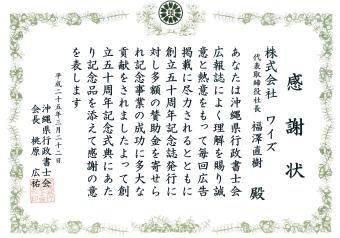 感謝状
株式会社 ワイズ
代表取締役社長 福澤直樹 殿
あなたは沖縄県行政書士会
広報誌によく理解を賜り誠
意と熱意をもって毎回広告
掲載に尽力されるとともに
創立五十周年記念誌発行に
対し多額の賛助金を寄せら
れ記念事業の成功に多大な
貢献をされましたよって創
立五十周年記念式典にあた
り記念品を添えて感謝の意
を表します
平成二十五年三月二十二日
沖縄県行政書士会
会長 桃原 広祐